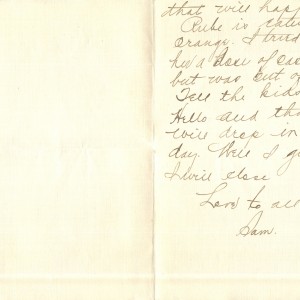 that will hap
Rube is eatin
orange. I tried
he'd a dose of cas
but was out o
Tell the kids
Hello and tha
will drop in
day. Well I g
I will close
Love to all
Sam.